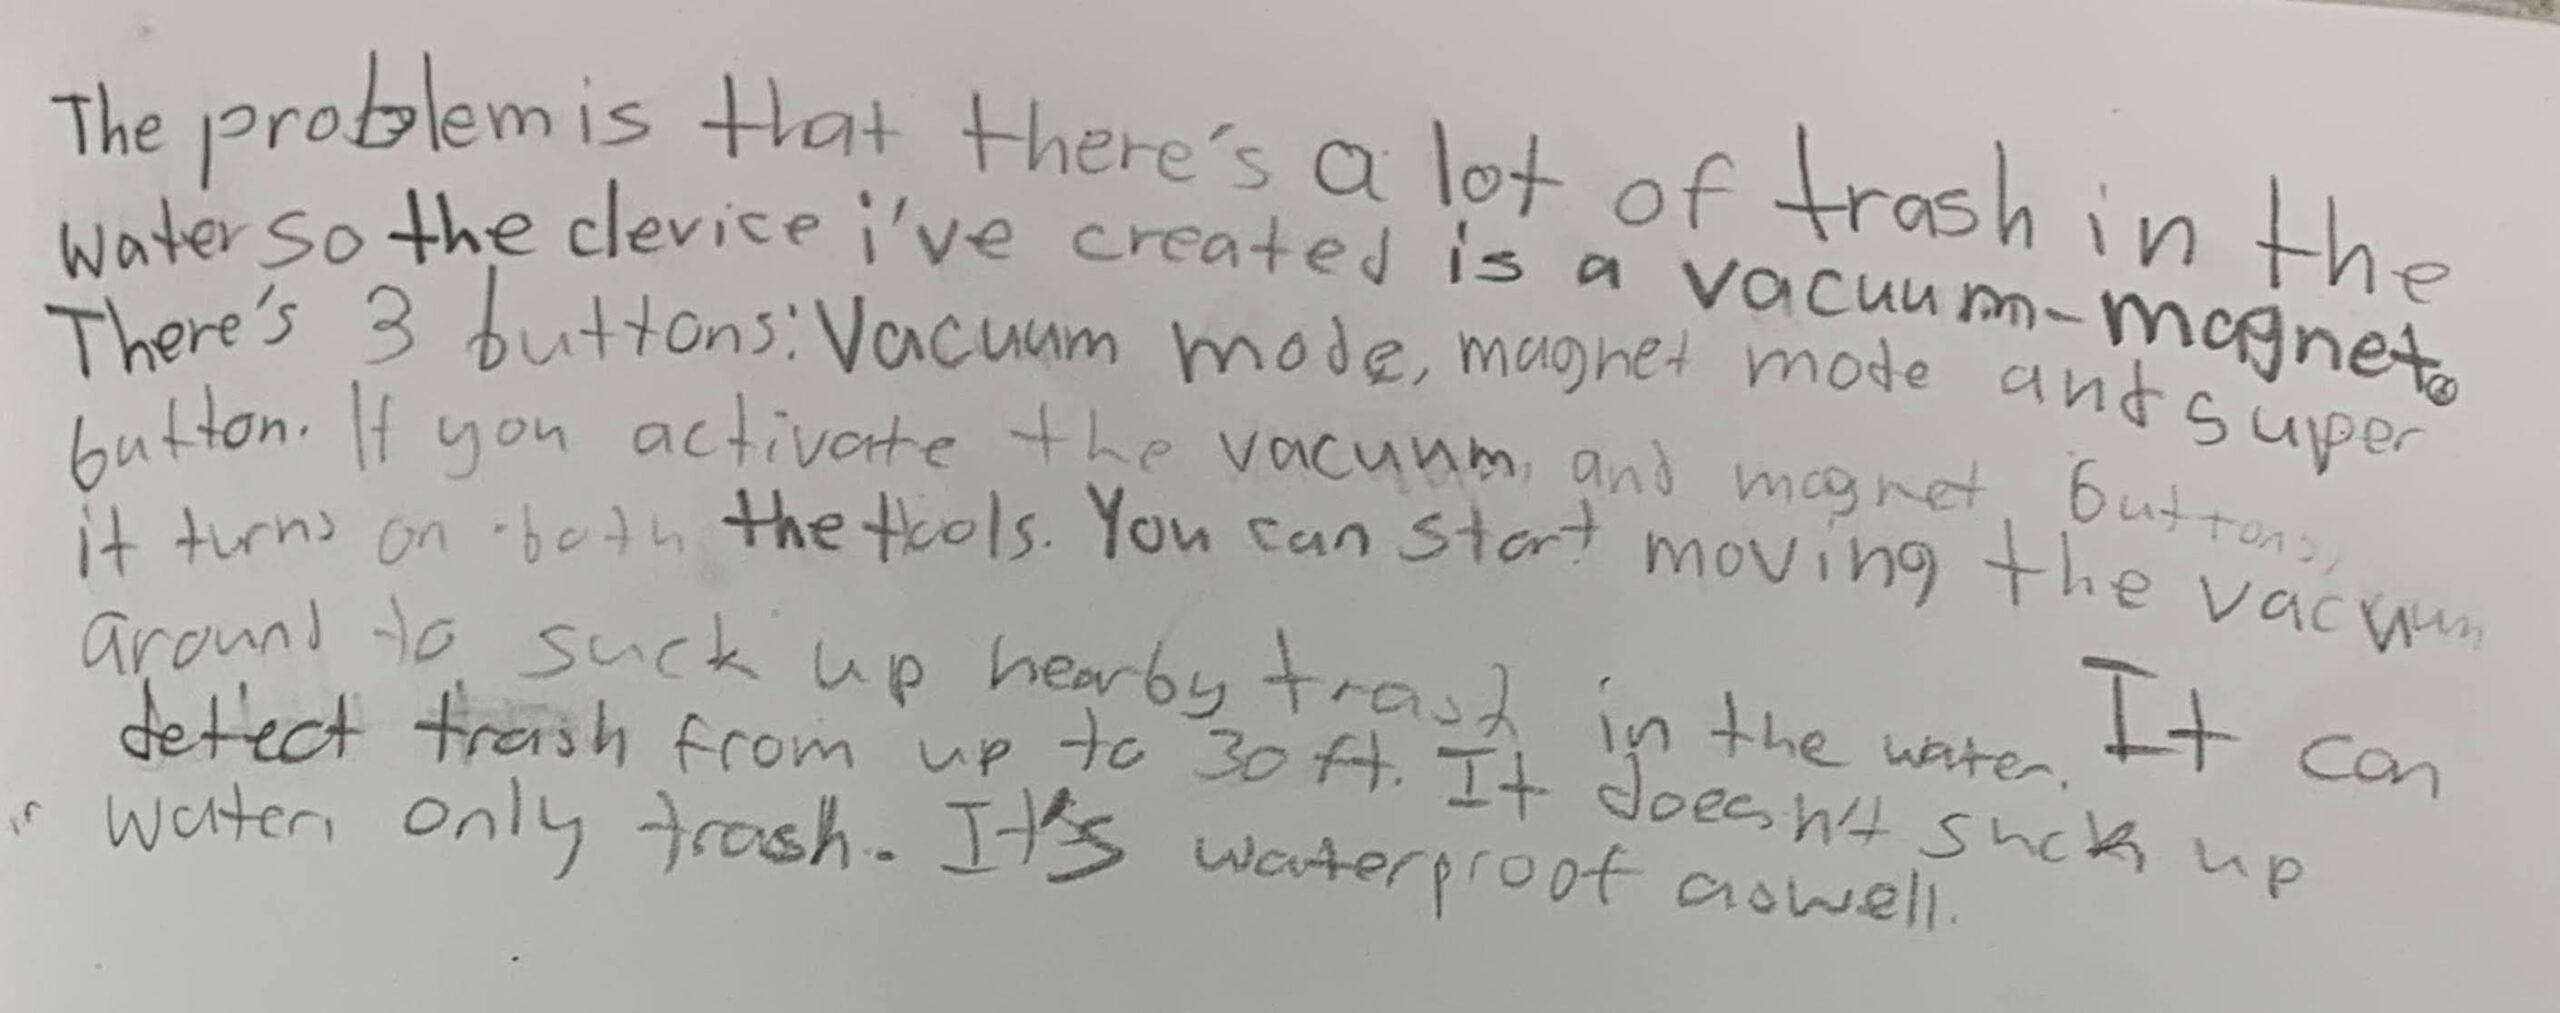 The problem is that there's a lot of trash in the
water so the device i've created is a vacuum-magnet.
There's 3 buttons: Vacuum mode, magnet mode and super
button. If you activate the vacuum, and magnet buttons,
it turns on both the tools. You can start moving the vacuum
around to suck up nearby trash in the water. It can
detect trash from up to 30 ft. It doesn't suck up
water, only trash. It's waterproof aswell.